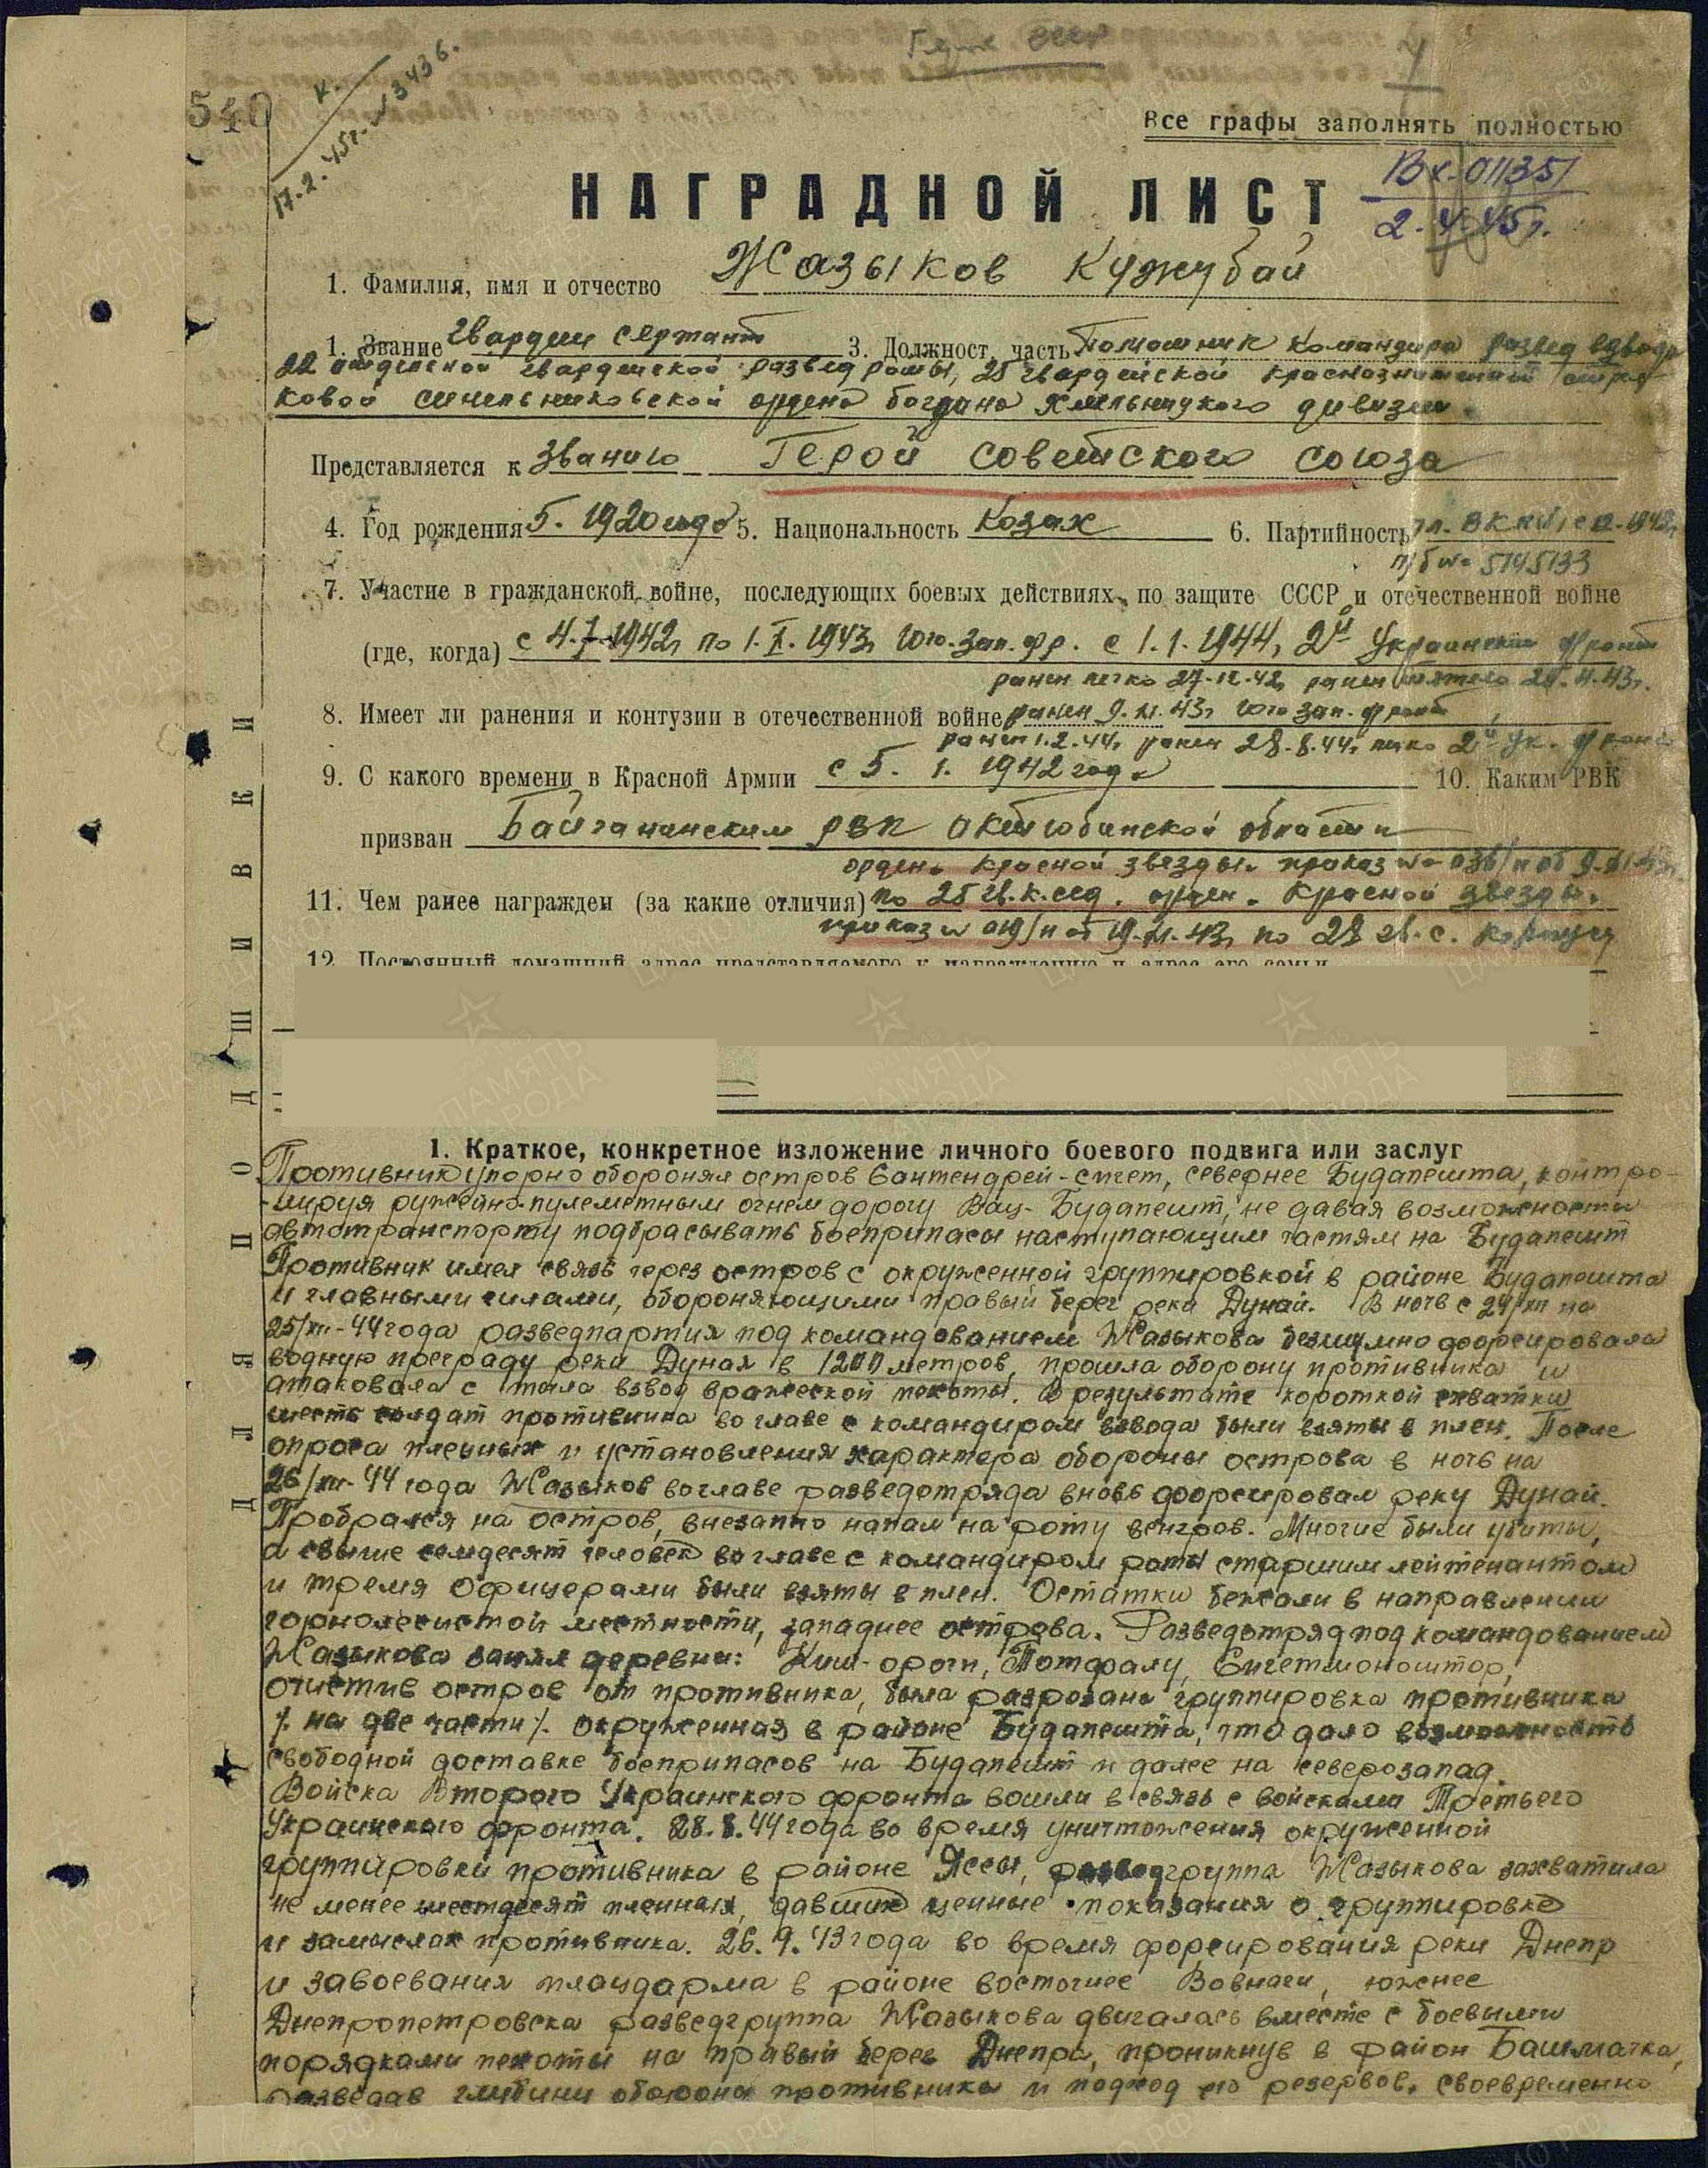 540
к.
17.2.45г. № 3436.
Все графы заполнять полностью
НАГРАДНОЙ ЛИСТ
Вх-011351
2.4.45г.
1. Фамилия, имя и отчество Жазыков Кужубай
1. Звание гвардии сержант 3. Должност, часть Помошник командира развед взвода
22 отдельной гвардейской развед роты, 25 гвардейской краснознаменной стрел-
ковой синельниковской ордена богдана хмельницкого дивизии.
Представляется к званию Герой советского союза
4. Год рождения 5. 1920 года 5. Национальность Козах 6. Партийность чл. ВКП(б) с 12.1942г
п/б № 5145133
7. Участие в гражданской войне, последующих боевых действиях по защите СССР и отечественной войне
(где, когда) с 4.7.1942г по 1.X.1943г Юго.Зап.фр. с 1.1.1944г 2й Украинский фронт
ранен легко 27.12.42г ранен тяжело 24.4.43г.
8. Имеет ли ранения и контузии в отечественной войне ранен 9.XI.43г юго зап. фронт
ранен 1.2.44г ранен 28.8.44г легко 2й Ук. фронт
9. С какого времени в Красной Армии с 5. 1. 1942 года 10. Каким РВК
призван Байганинским РВК Актюбинской области
орден. Красной звезды. приказ № 036/н от 9.
11. Чем ранее награжден (за какие отличия) по 25 гв.к.сд. орден. Красной звезды.
приказ № 019/н от 19.XI.43г по 28 гв.с. корпусу
12. Постоянный домашний адрес представляемого к награждению и адрес его семьи
ДЛЯ ПОДШИВКИ
1. Краткое, конкретное изложение личного боевого подвига или заслуг
Противник упорно оборонял остров Сантендрей-сигет, севернее Будапешта, контро-
лируя ружейно-пулеметным огнем дорогу Вац-Будапешт, не давая возможности
автотранспорту подбрасывать боеприпасы наступающим частям на Будапешт
Противник имел связь через остров с окруженной группировкой в районе Будапешта
и главными силами, обороняющими правый берег реки Дунай. В ночь с 24/XII на
25/XII-44 года разведпартия под командованием Жазыкова безшумно форсировала
водную преграду реки Дуная в 1200 метров, прошла оборону противника и
атаковала с тыла взвод вражеской пехоты. В результате короткой схватки
шесть солдат противника во главе с командиром взвода были взяты в плен. После
опроса пленных и установления характера обороны острова в ночь на
26/XII-44 года Жазыков во главе разведотряда вновь форсировал реку Дунай.
Пробрался на остров, внезапно напал на роту венгров. Многие были убиты,
а свыше семдесят человек во главе с командиром роты старшим лейтенантом
и тремя офицерами были взяты в плен. Остатки бежали в направлении
горнолесистой местности, западнее острова. Разведотряд под командованием
Жазыкова занял деревни: Киш-ороги, Потфалу, Сигетмоноштор,
очистив остров от противника, была разрозана группировка противника
/. на две части/. окруженная в районе Будапешта, что дало возможность
свободной доставке боеприпасов на Будапешт и далее на северозапад.
Войска Второго Украинского фронта вошли в связь с войсками Третьего
Украинского фронта. 28.8.44 года во время уничтожения окруженной
группировки противника в районе Яссы, разведгруппа Жазыкова захватила
не менее шестдесят пленных, давшие ценные показания о группировке
и замыслах противника. 26.9.43 года во время форсирования реки Днепр
и завоевания плацдарма в районе восточнее Вовниги, южнее
Днепропетровска разведгруппа Жазыкова двигалась вместе с боевыми
порядками пехоты на правый берег Днепра, проникнув в район Башмачка,
разведав глубину обороны противника и подход его резервов, своевременно